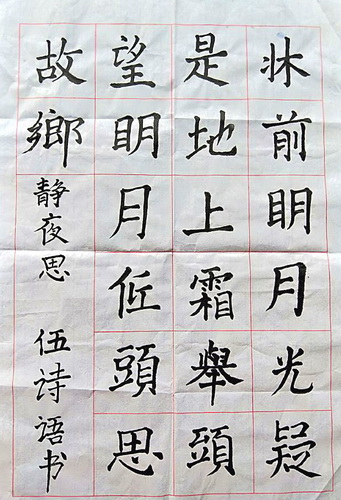 牀前明月光疑
是地上霜舉頭
望明月低頭思
故鄉
静夜思 伍诗语书